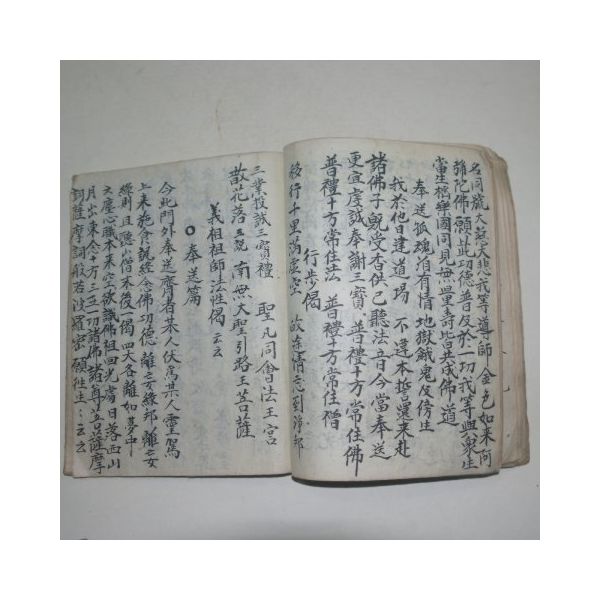 名同號大慈大悲我等導師 金色如來阿
彌陀佛 願此功德普及於一切我等與衆生
當生極樂國同見無量壽皆共成佛道
奉送孤魂洎有情 地獄餓鬼及傍生
我於他日建道場 不違本誓還來赴
諸佛子 旣受香供已聽法音今當奉送
更宜虔誠奉謝三寶 普禮十方常住佛
普禮十方常住法 普禮十方常住僧
行步偈
移行千里滿虛空 故途情忘到淨邦
三業投誠三寶禮 聖凡同會法王宮
散花落 三說 南無大聖引路王菩薩
義相祖師法性偈 云云
奉送篇
今此門外奉送齋者某人伏爲某人靈駕
上來施食諷經念佛功德 離妄緣邪 離妄
緣則且聽山僧末後一偈 四大各離如夢中
六塵心識本來空欲識佛祖回光處日落西山
月出東念十方三世一切諸佛諸尊菩薩摩
訶薩摩訶般若波羅密願往生 云云